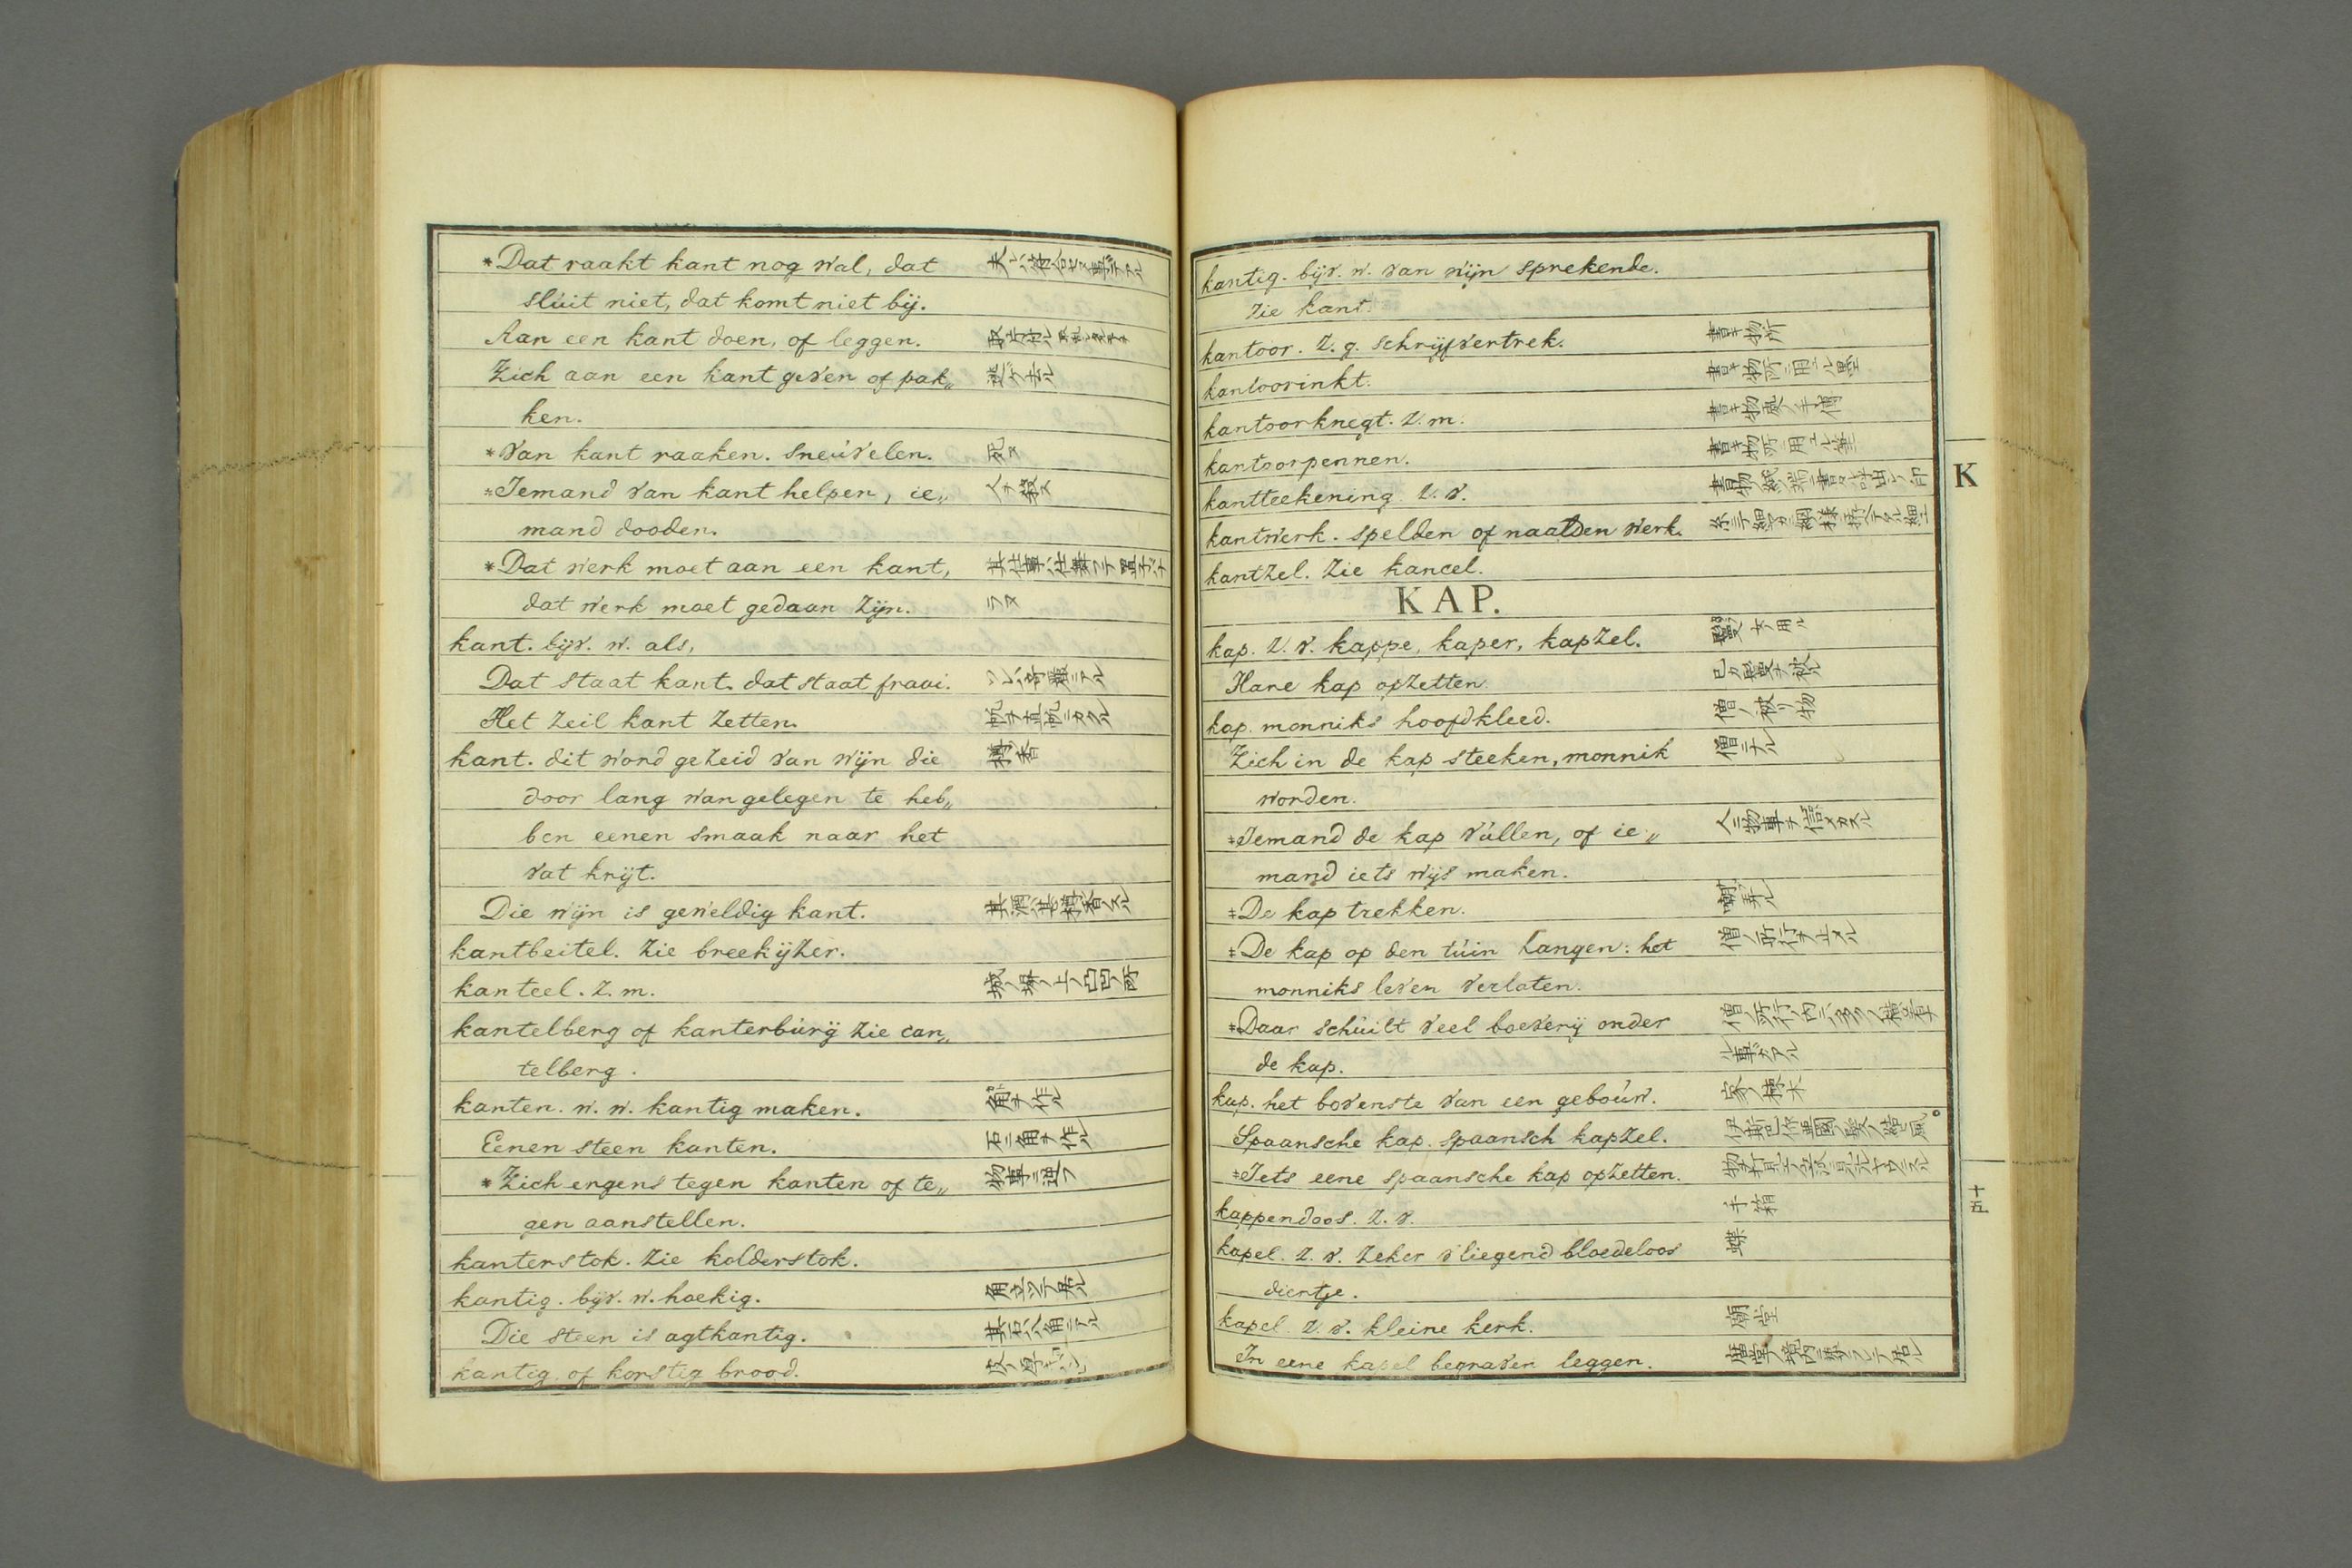 *Dat raakt kant nog wal, dat
sluit niet, dat komt niet bij.
Aan een kant doen, of leggen.
Zich aan een kant geven of pak„ 逃ケ去ル
ken.
*Van kant raaken. sneuvelen. 死ヌ
*Iemand van kant helpen, ie„ 人ヲ殺ス
mand dooden.
*Dat werk moet aan een kant,
dat werk moet gedaan zijn. ラヌ
kant. bijv. w. als,
Dat staat kant. dat staat fraai.
Het zeil kant zetten.
kant. dit word gezeid van wijn die 樽香
door lang wan gelegen te heb„
ben eenen smaak naar het
vat krijt.
Die wijn is geweldig kant.
kantbeitel. zie breekijzer.
kanteel. z. m. 城ノ塀ノ上ノ凸凹ノ所
kantelberg of kanterburij zie can„
telberg.
kanten. w. w. kantig maken. 角ヲ作ル
Eenen steen kanten. 石ニ角ヲ作ル
*Zich ergens tegen kanten of te„ 物事ニ逆フ
gen aanstellen.
kanterstok. zie kolderstok.
kantig. bijv. w. hoekig. 角立ツテ居ル
Die steen is agtkantig. 其石八角ニアル
kantig, of korstig brood.
kantig. bijv. w. van wijn sprekende.
zie kant.
kantoor. z. g. schrijfvertrek. 書キ物所
kantoorinkt. 書キ物所ニ用ユル墨
kantoorknegt. z. m. 書キ物處ノ手傳
kantoorpennen. 書キ物所ニ用ユル筆
kantteekening. z. v.
kantwerk. spelden of naalden werk.
kantzel. zie kancel.
KAP.
kap. z. v. kappe, kaper, kapzel.
Hare kap opzetten.
kap. monniks hoofdkleed. 僧ノ被リ物
Zich in de kap steeken, monnik 僧ニナル
worden.
*Iemand de kap vullen, of ie„
mand iets wijs maken.
*De kap trekken. 嘲弄ル
*De kap op den tuin hangen: het 僧ノ所行ヲ止メル
monniks leven verlaten.
*Daar schuilt veel boeverij onder
de kap. ル事ガアル
kap. het bovenste van een gebouw. 家ノ棟木
Spaansche kap. spaansch kapzel.
*Iets eene spaansche kap opzetten.
kappendoos. z. v. 手箱
kapel. z. v. zeker vliegend bloedeloos 蝶
diertje.
kapel. z. v. kleine kerk. 廟堂
In eene kapel begraven leggen.
K
四十